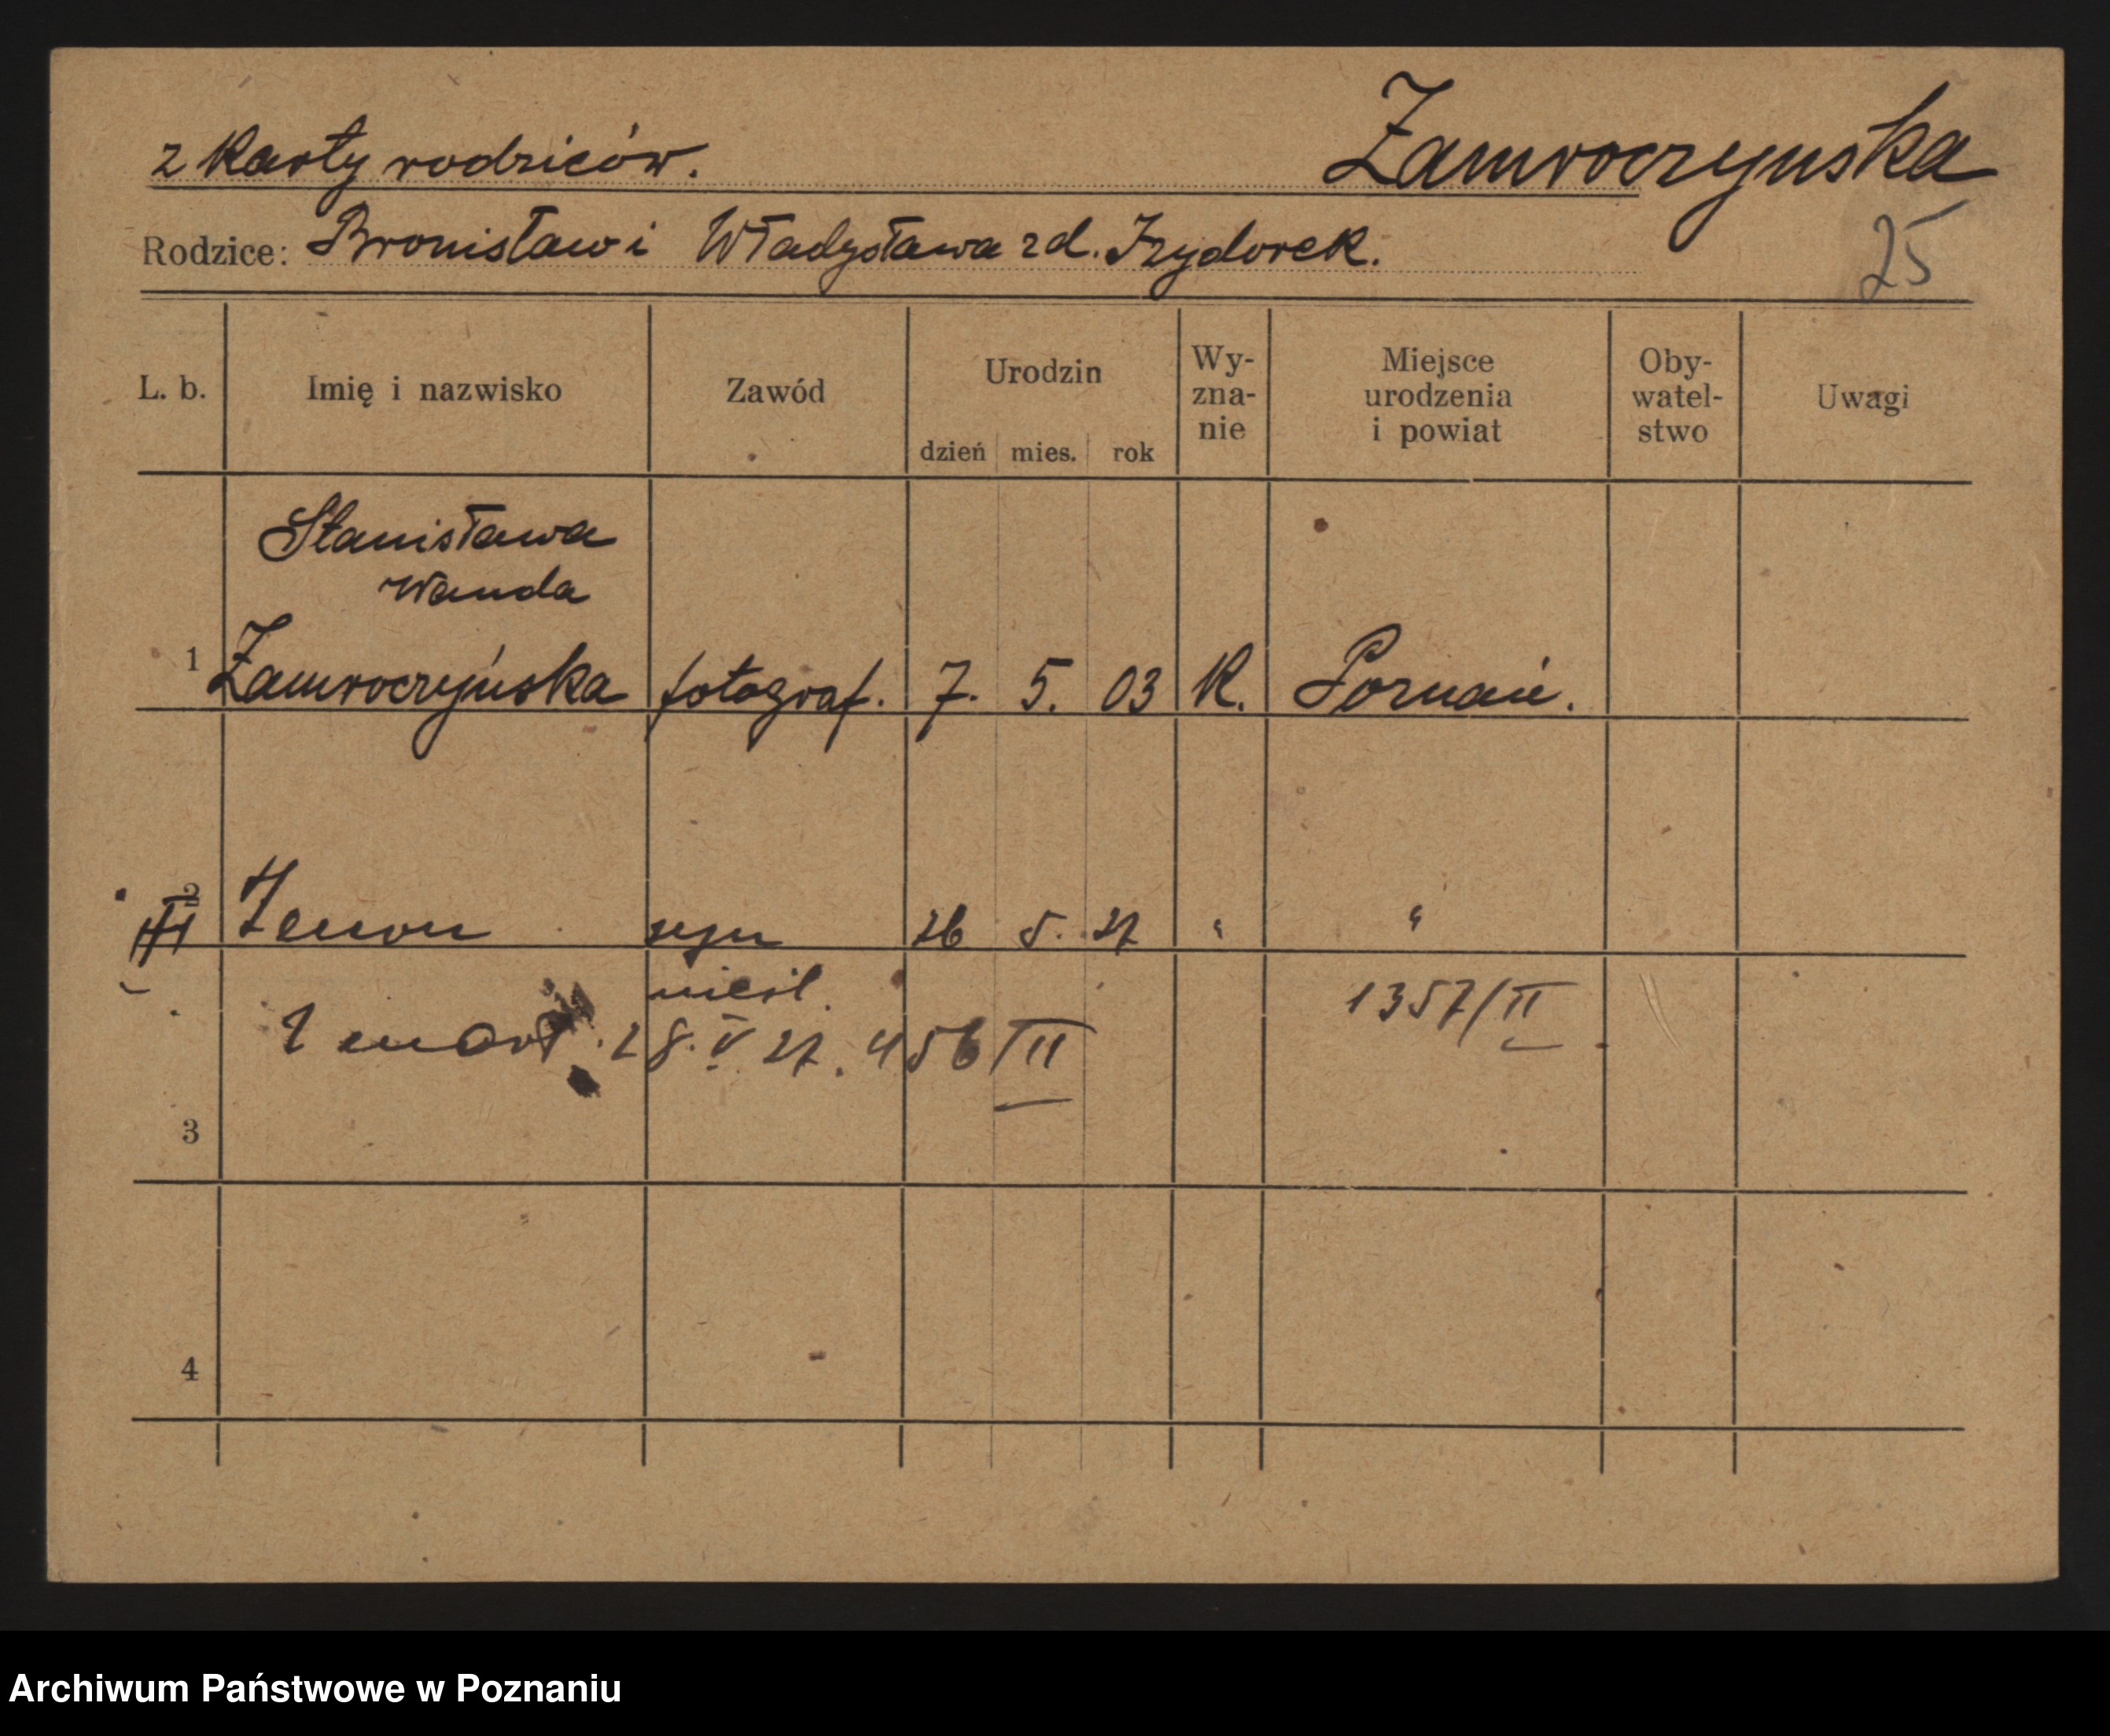 z karty rodziców. Zamroczyńska
Rodzice: Bronisław i Władysława zd. Izydorek. 25
L. b. Imię i nazwisko Zawód Urodzin dzień mies. rok Wy-znanie Miejsce urodzenia i powiat Oby-watel-stwo Uwagi
Stanisława
Wanda
1 Zamroczyńska fotograf. 7. 5. 03 K. Poznań.
2 Zenon syn 26 5. 27 " "
nieśl. 1357/II
Zmarł 28. V 27. 456/II
3
4
Archiwum Państwowe w Poznaniu